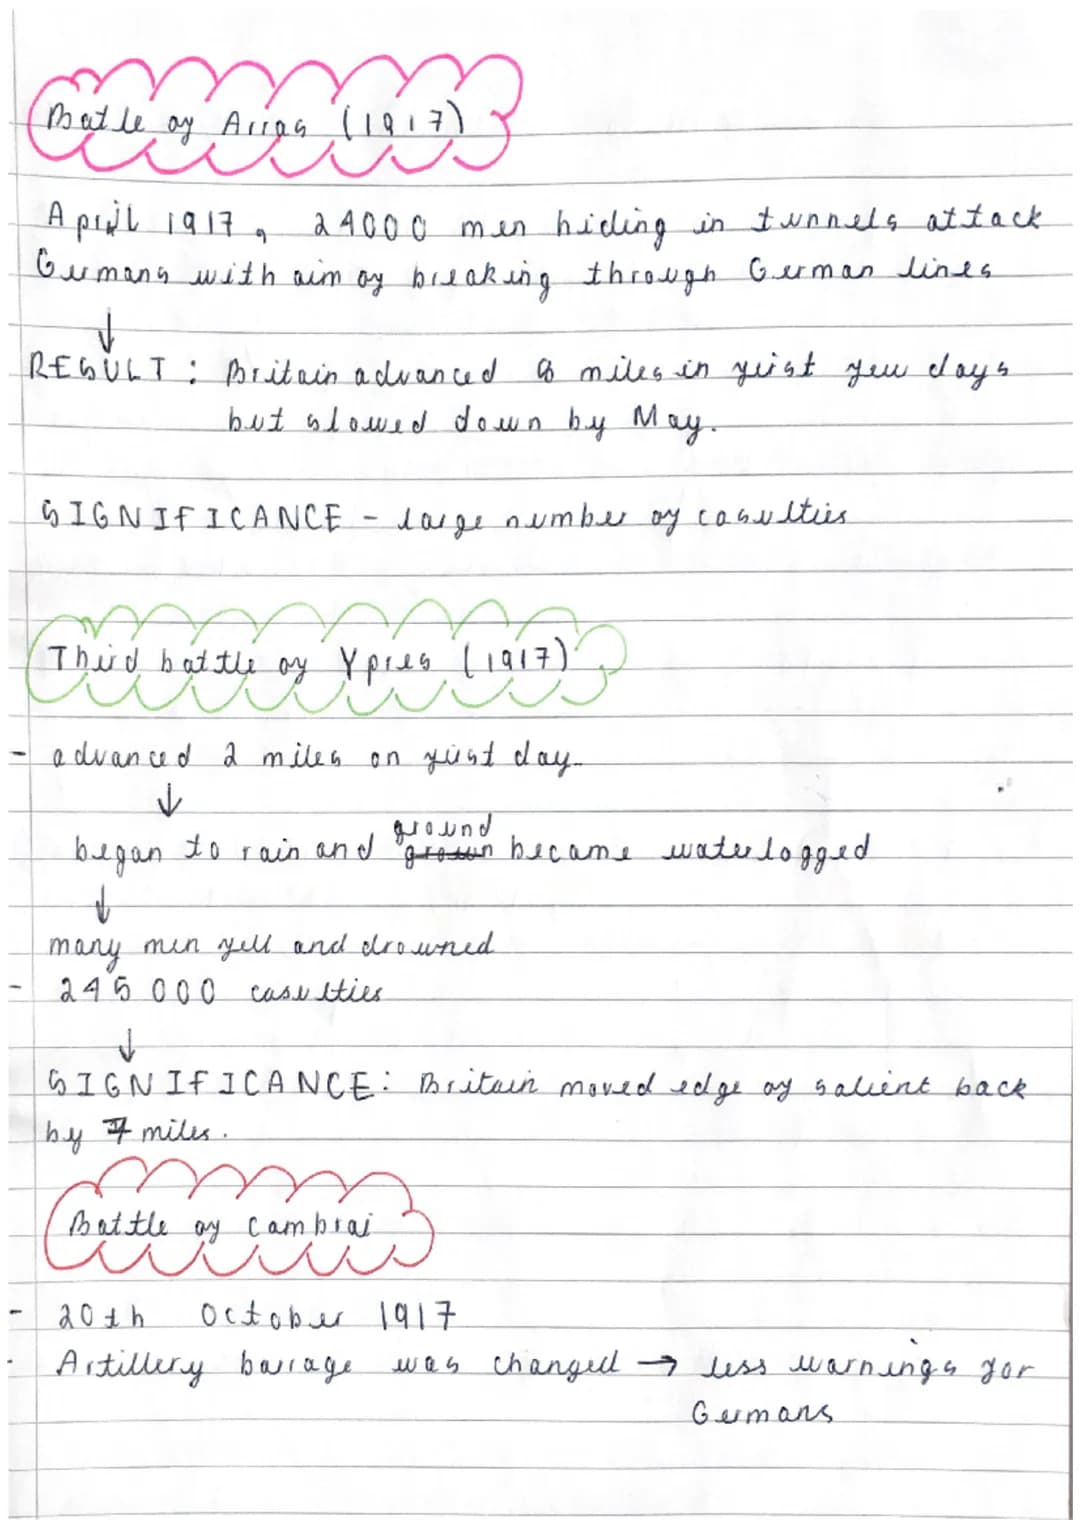 Battle of Arras (1917)
April 1917, 24000 men hiding in tunnels attack
Germans with aim of breaking through German lines
↓
RESULT : Britain advanced 8 miles in first few days
but slowed down by May.
SIGNIFICANCE - large number of casulties
Third battle of Ypres (1917)
- advanced 2 miles on first day.
↓
ground
began to rain and grown became waterlogged
↓
many men fell and drowned
- 245 000 casulties
↓
SIGNIFICANCE: Britain moved edge of salient back
by 7 miles.
Battle of Cambrai
- 20th October 1917
- Artillery barrage was changed → less warnings for
Germans